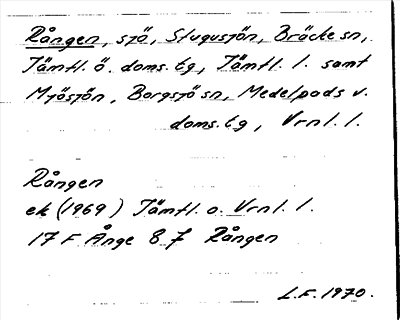 Rången, sjö, Stugusjön, Bräcke sn,
Jämtl. ö. doms. tg, Jämtl. l. samt
Mjösjön, Borgsjö sn, Medelpads v.
doms. tg, Vrnl. l.
Rången
ek (1969) Jämtl. o. Vrnl. l.
17 F Ånge 8 f Rången
L.F. 1970.